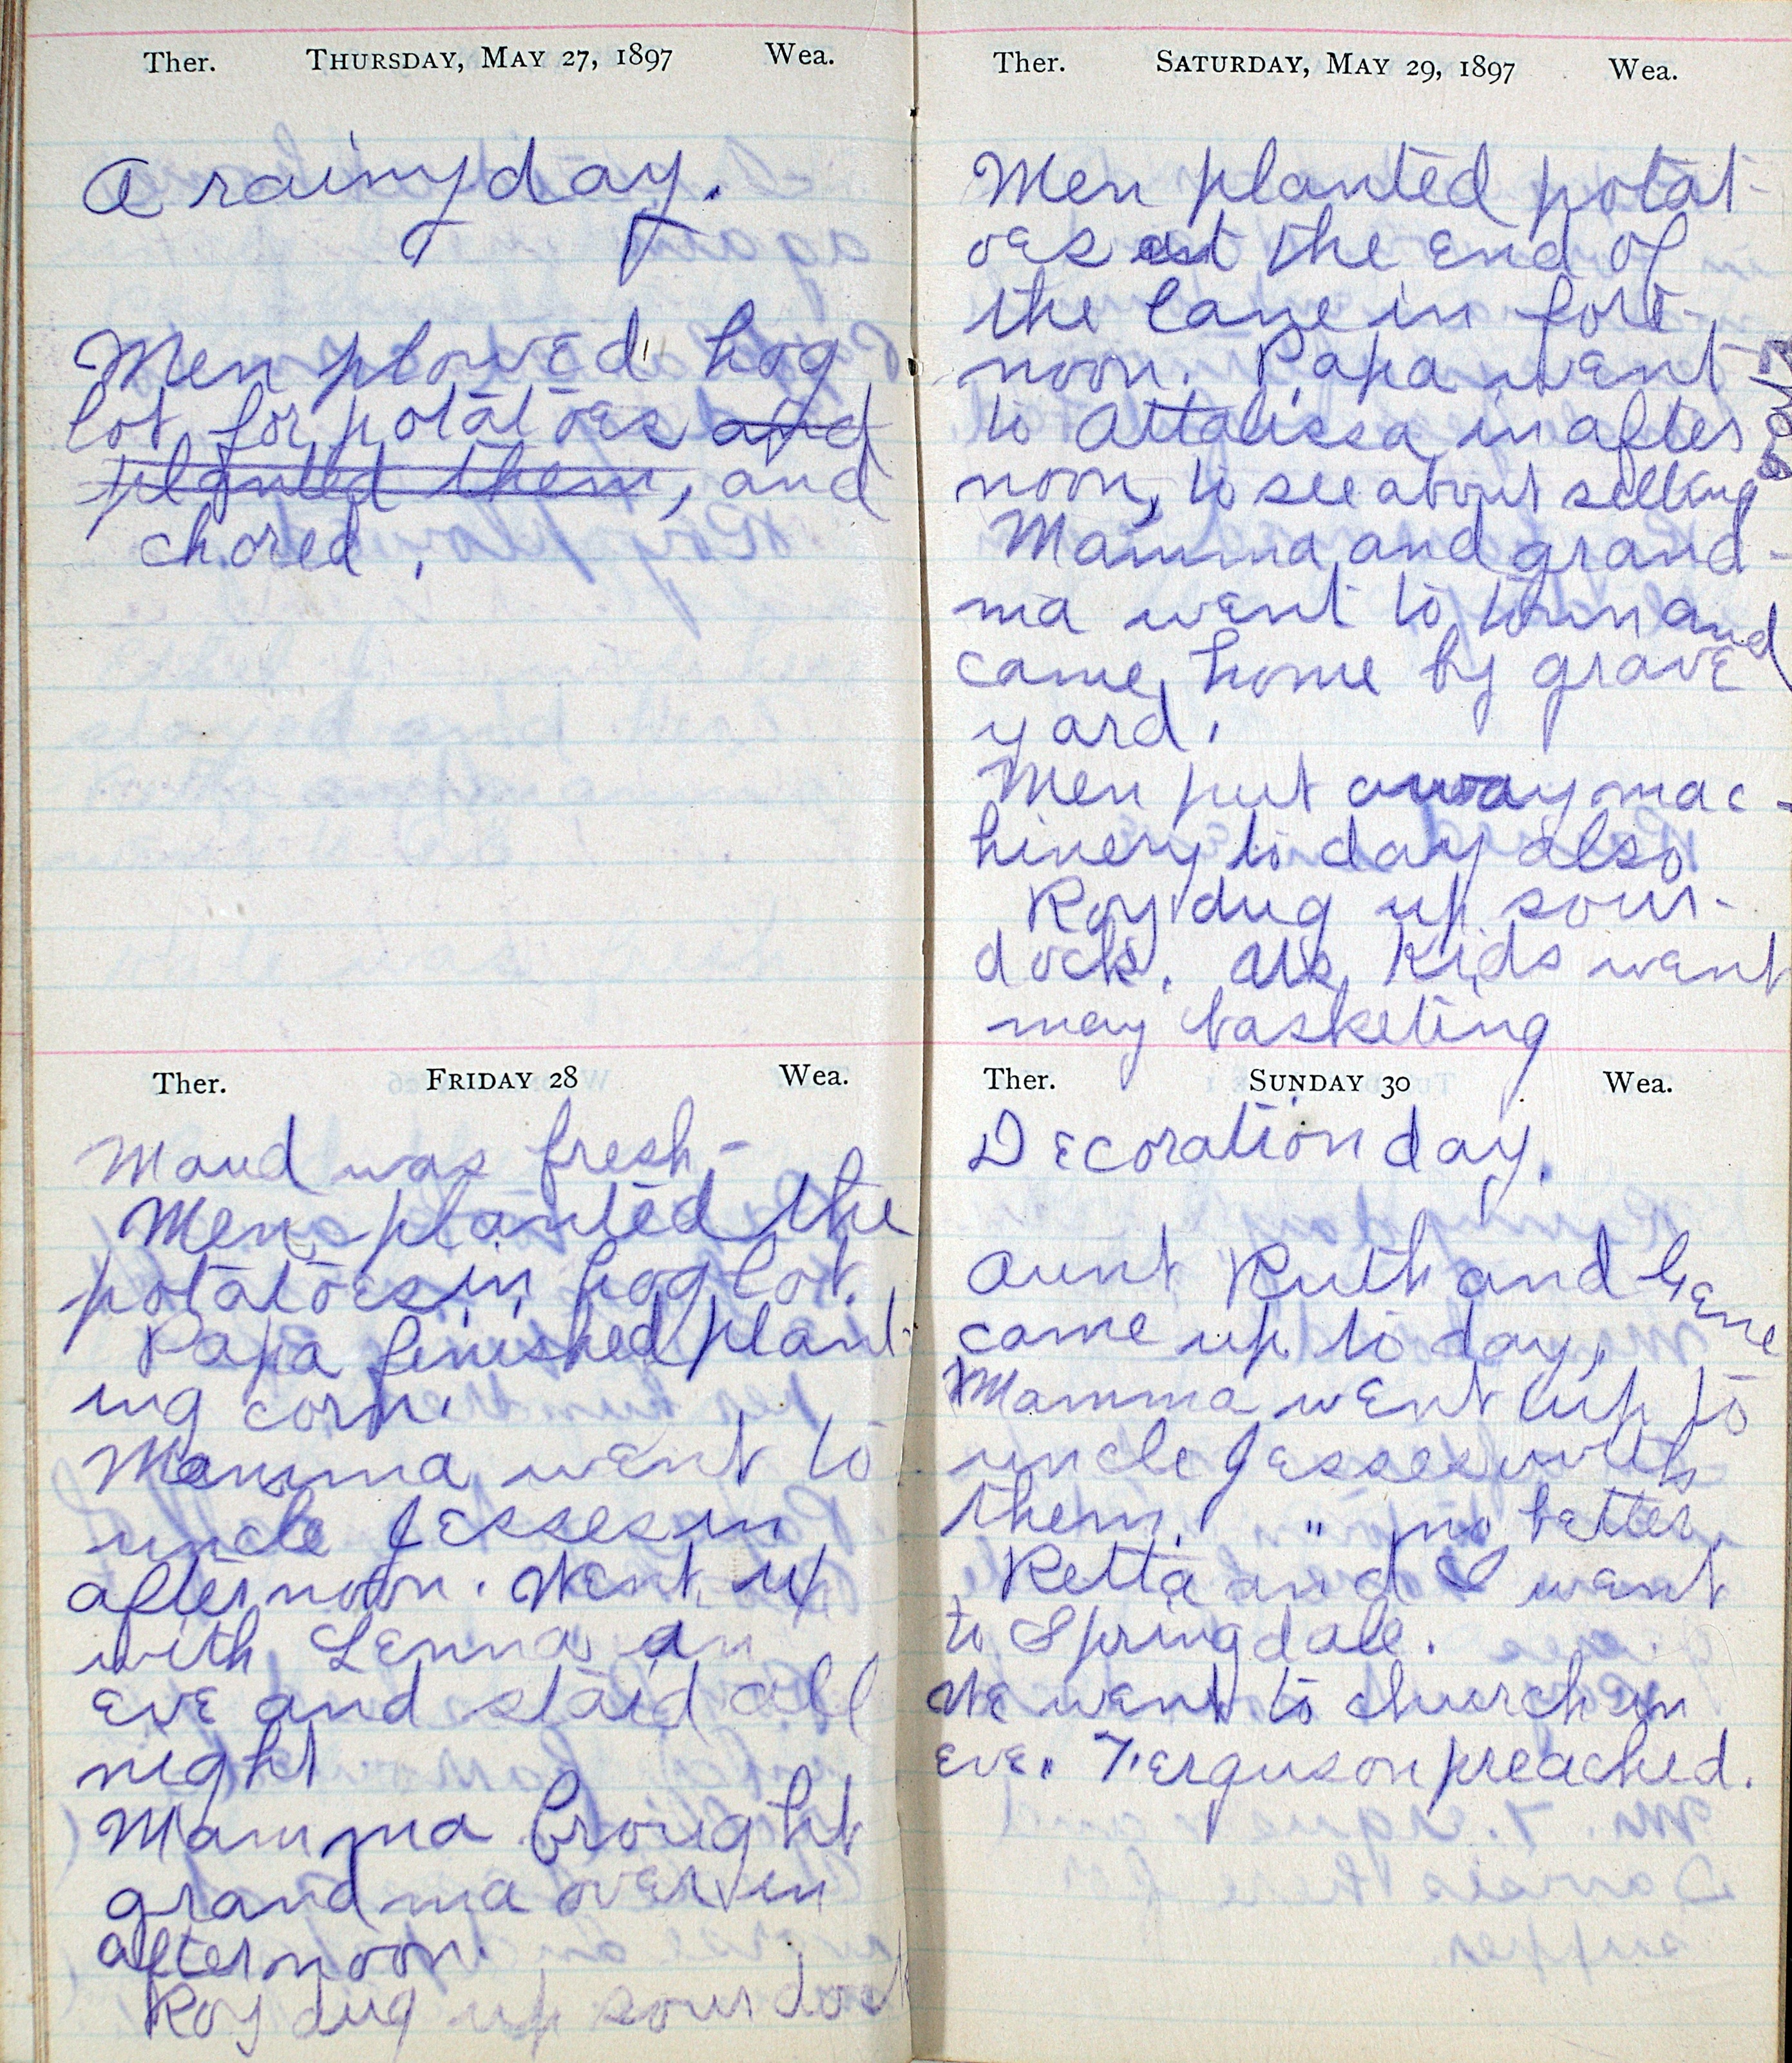 Ther. THURSDAY, MAY 27, 1897 Wea.
A rainy day.
Men plowed hog
lot for potatoes and
planted them, and
chored.
Ther. FRIDAY 28 Wea.
Maud was fresh-
Men planted the
potatoes in hog lot.
Papa finished plant-
ing corn.
Mamma went to
uncle Jesses in
afternoon. Went up
with Lenna in
eve and staid all
night
Mamma brought
grandma over in
afternoon.
Roy dug up sourdock
Ther. SATURDAY, MAY 29, 1897 Wea.
Men planted potat-
oes at the end of
the lane in fore-
noon. Papa went
to Attalissa in after
noon, to see about selling
Mamma and grand-
ma went to town and
came home by grave
yard.
Men put away mac-
hinery to day also
Roy dug up sour-
dock. Us Kids went
may basketing
Ther. SUNDAY 30 Wea.
Decoration day.
Aunt Ruth and Gene
came up to day.
Mamma went up to
uncle Jesses with
them. " no better
Retta and I went
to Springdale.
We went to church in
eve. Ferguson preached.